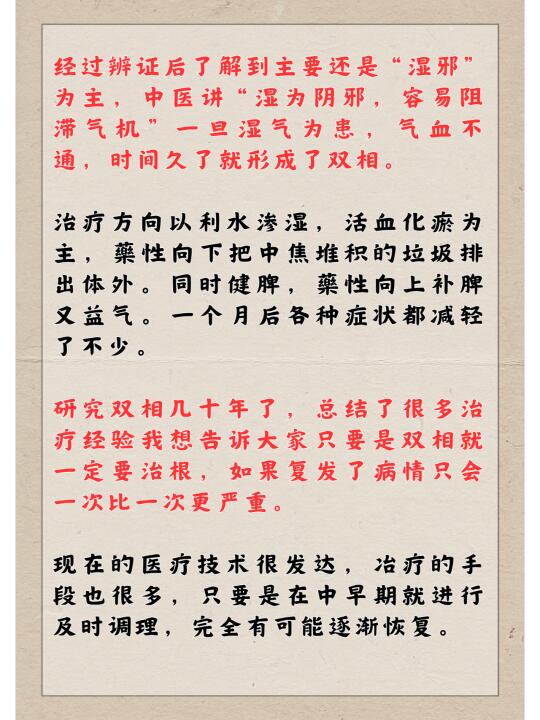 经过辨证后了解到主要还是“湿邪”
为主，中医讲“湿为阴邪，容易阻
滞气机”一旦湿气为患，气血不
通，时间久了就形成了双相。
治疗方向以利水渗湿，活血化瘀为
主，藥性向下把中焦堆积的垃圾排
出体外。同时健脾，藥性向上补脾
又益气。一个月后各种症状都减轻
了不少。
研究双相几十年了，总结了很多治
疗经验我想告诉大家只要是双相就
一定要治根，如果复发了病情只会
一次比一次更严重。
现在的医疗技术很发达，冶疗的手
段也很多，只要是在中早期就进行
及时调理，完全有可能逐渐恢复。